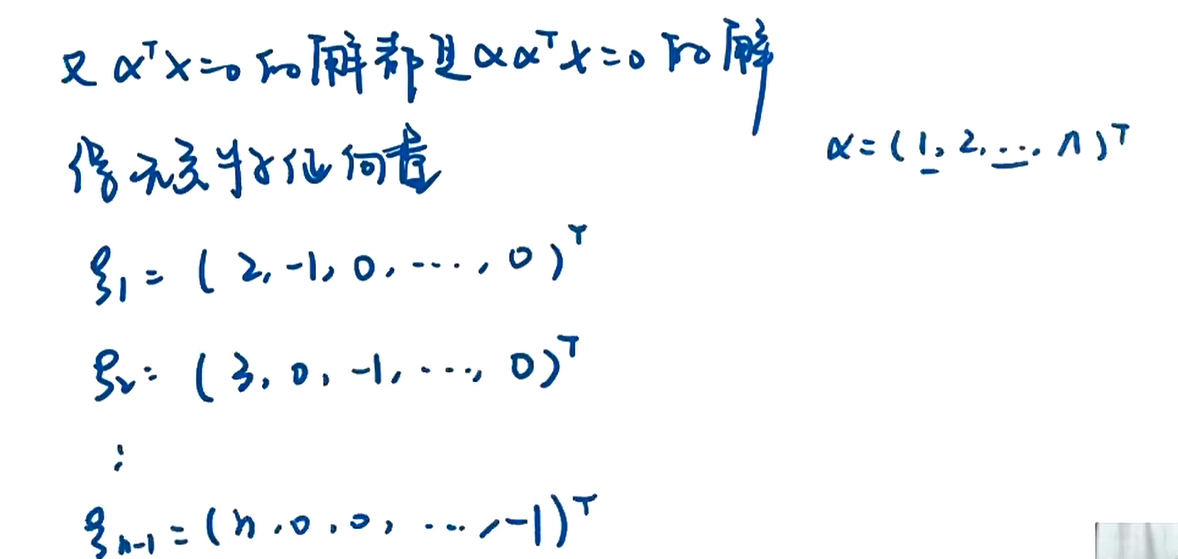 又 α^T x=0 的解都是 αα^T x=0 的解
α=(1, 2, ..., n)^T
得无关特征向量
ξ_1 = (2, -1, 0, ..., 0)^T
ξ_2 = (3, 0, -1, ..., 0)^T
⋮
ξ_{n-1} = (n, 0, 0, ..., -1)^T